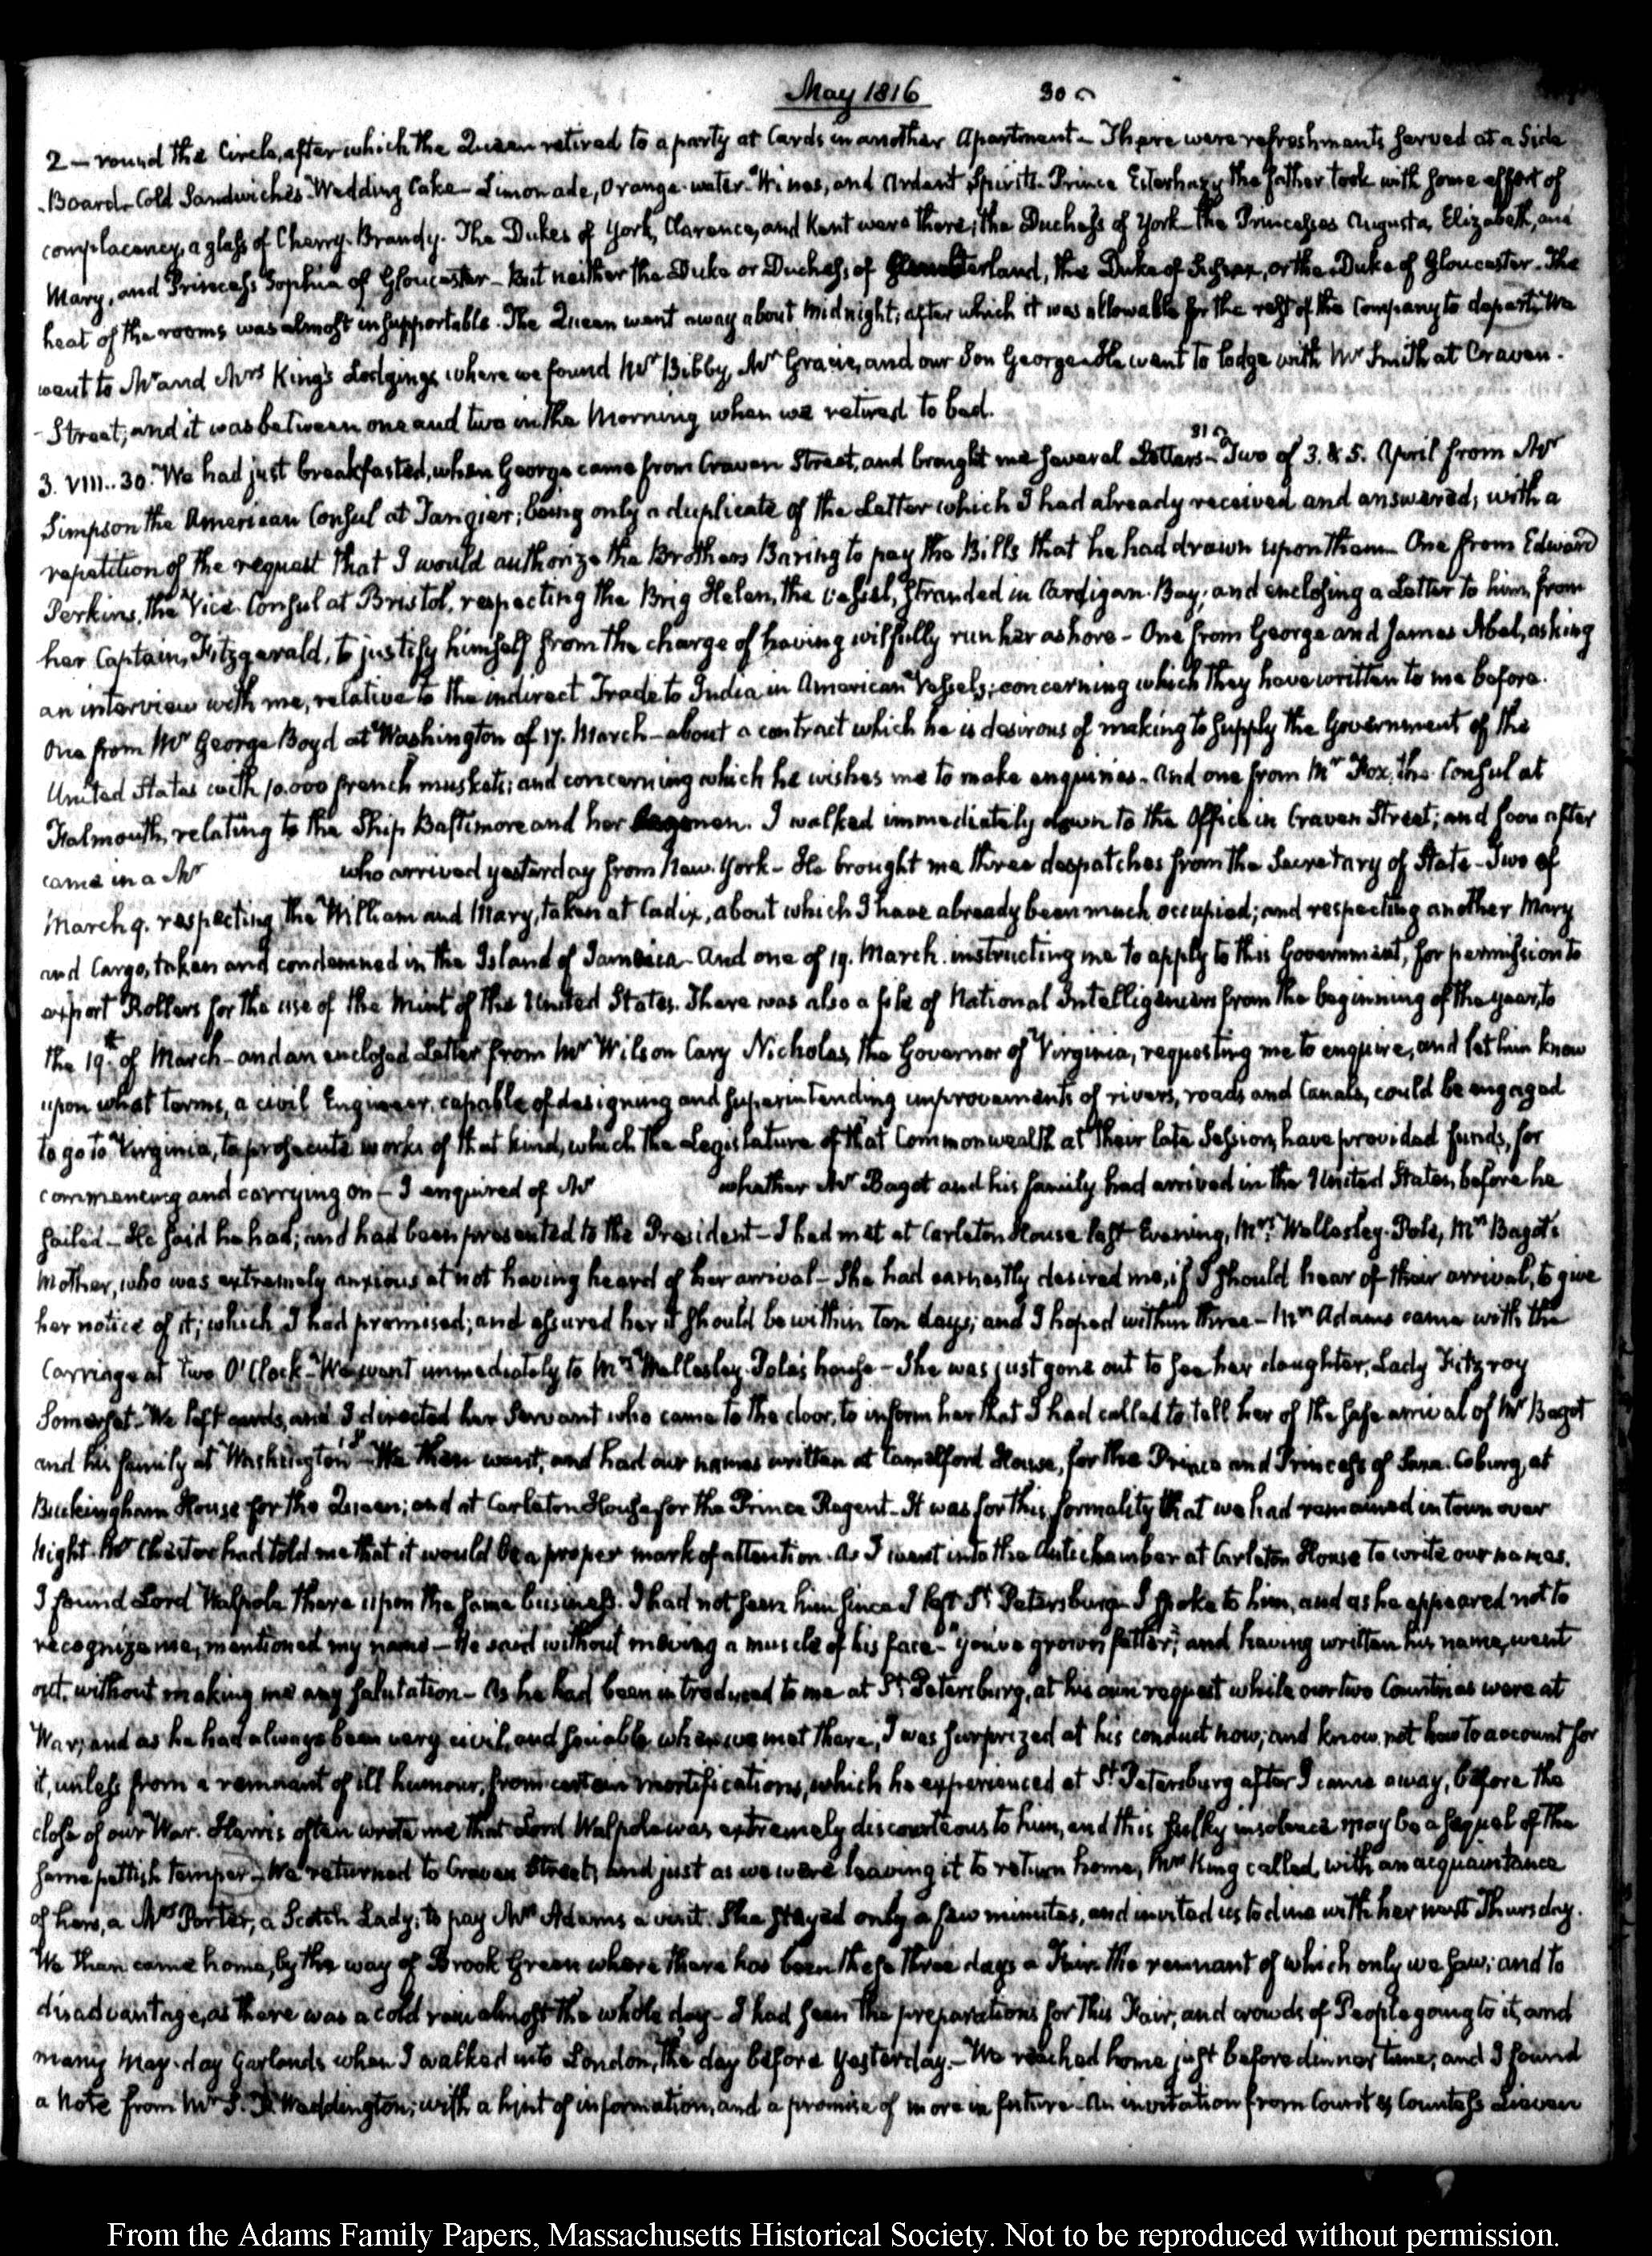 May 1816
2 — round the Circle, after which the Queen retired to a party at Cards in another Apartment — There were refreshments served at a Side
-Board — Cold Sandwiches — Wedding Cake — Limonade, Orange-water — Wines, and Ardent Spirits — Prince Esterhazy the father took with some effort of
complacency, a glass of Cherry-Brandy. The Dukes of York, Clarence, and Kent were there; the Duchess of York — the Princesses Augusta, Elizabeth, and
Mary, and Princess Sophia of Gloucester — But neither the Duke or Duchess of the Duke of Sussex, or the Duke of Gloucester. The
heat of the rooms was almost insupportable. The Queen went away about midnight; after which it was allowable for the rest of the Company to depart. We
went to Mr and Mrs King's Lodgings, where we found Mr Bibby, Mr Gracie, and our Son George. He went to lodge with Mr Smith at Craven-
-Street; and it was between one and two in the Morning when we retired to bed.
3. VIII..30. We had just breakfasted, when George came from Craven Street, and brought me several Letters — Two of 3. & 5. April from Mr
Simpson the American Consul at Tangier; being only a duplicate of the Letter which I had already received and answered; with a
repetition of the request that I would authorize the Brothers Baring to pay the Bills that he had drawn upon them — One from Edward
Perkins, the Vice-Consul at Bristol, respecting the Brig Helen, the vessel, stranded in Cardigan-Bay; and enclosing a Letter to him, from
her Captain, Fitzgerald, to justify himself from the charge of having wilfully run her ashore — One from George and James Abel, asking
an interview with me, relative to the indirect Trade to India in American Vessels; concerning which they have written to me before.
One from Mr George Boyd at Washington of 17. March — about a contract which he is desirous of making to supply the Government of the
United States with 10.000 french muskets; and concerning which he wishes me to make enquiries. And one from Mr Fox, the Consul at
Falmouth, relating to the Ship Baltimore and her I walked immediately down to the Office in Craven Street; and soon after
came in a Mr who arrived yesterday from New-York — He brought me three despatches from the Secretary of State — Two of
March 9. respecting the William and Mary, taken at Cadix, about which I have already been much occupied; and respecting another Mary
and Cargo, taken and condemned in the Island of Jamaica — And one of 19. March. instructing me to apply to this Government, for permission to
export Rollers for the use of the Mint of the United States. There was also a file of National Intelligencers from the beginning of the year, to
the 19th of March — and an enclosed Letter from Mr Wilson Cary Nicholas, the Governor of Virginia, requesting me to enquire, and let him know
upon what terms, a civil Engineer, capable of designing and superintending improvements of rivers, roads and Canals, could be engaged
to go to Virginia, to prosecute works of that kind, which the Legislature of that Commonwealth at their late Session, have provided funds, for
commencing and carrying on — I enquired of Mr whether Mr Bagot and his family had arrived in the United States, before he
sailed — He said he had; and had been presented to the President — I had met at Carleton House last Evening, Mrs Wellesley-Pole, Mrs Bagot's
Mother, who was extremely anxious at not having heard of her arrival — She had earnestly desired me, if I should hear of their arrival, to give
her notice of it; which I had promised; and assured her it should be within ten days; and I hoped within three — Mrs Adams came with the
Carriage at two O'Clock — We went immediately to Mrs Wellesley-Pole's house — She was just gone out to see her daughter, Lady Fitzroy
Somerset. We left cards, and I directed her Servant who came to the door, to inform her that I had called to tell her of the safe arrival of Mr Bagot
and his family at Washington — We then went, and had our names written at Camelford House, for the Prince and Princess of Saxe-Coburg, at
Buckingham House for the Queen; and at Carleton House for the Prince Regent — It was for this formality that we had remained in town over
night. Mr Chester had told me that it would be a proper mark of attention. As I went into the Antichamber at Carleton House to write our names,
I found Lord Walpole there upon the same business. I had not seen him since I left St Petersburg — I spoke to him, and as he appeared not to
recognize me, mentioned my name — He said without moving a muscle of his face — "you've grown fatter;" and having written his name, went
out, without making me any salutation — As he had been introduced to me at St Petersburg, at his own request while our two Countries were at
War; and as he had always been very civil, and sociable when we met there, I was surprized at his conduct now; and know not how to account for
it, unless from a remnant of ill humour, from certain mortifications, which he experienced at St Petersburg after I came away, before the
close of our War. Harris often wrote me that Lord Walpole was extremely discourteous to him, and this sulky insolence may be a sequel of the
same pettish temper — We returned to Craven Street, and just as we were leaving it to return home, Mrs King called, with an acquaintance
of hers, a Mrs Porter, a Scotch Lady, to pay Mrs Adams a visit. She stayed only a few minutes, and invited us to dine with her next Thursday.
We then came home, by the way of Brook Green where there has been these three days a Fair, the remnant of which only we saw; and to
disadvantage, as there was a cold rain almost the whole day — I had seen the preparations for this Fair, and crowds of People going to it, and
many May-day Garlands when I walked into London, the day before yesterday. — We reached home just before dinner time; and I found
a Note from Mr S. F. Waddington; with a hint of information, and a promise of more in future — An invitation from Count & Countess Lieven
From the Adams Family Papers, Massachusetts Historical Society. Not to be reproduced without permission.